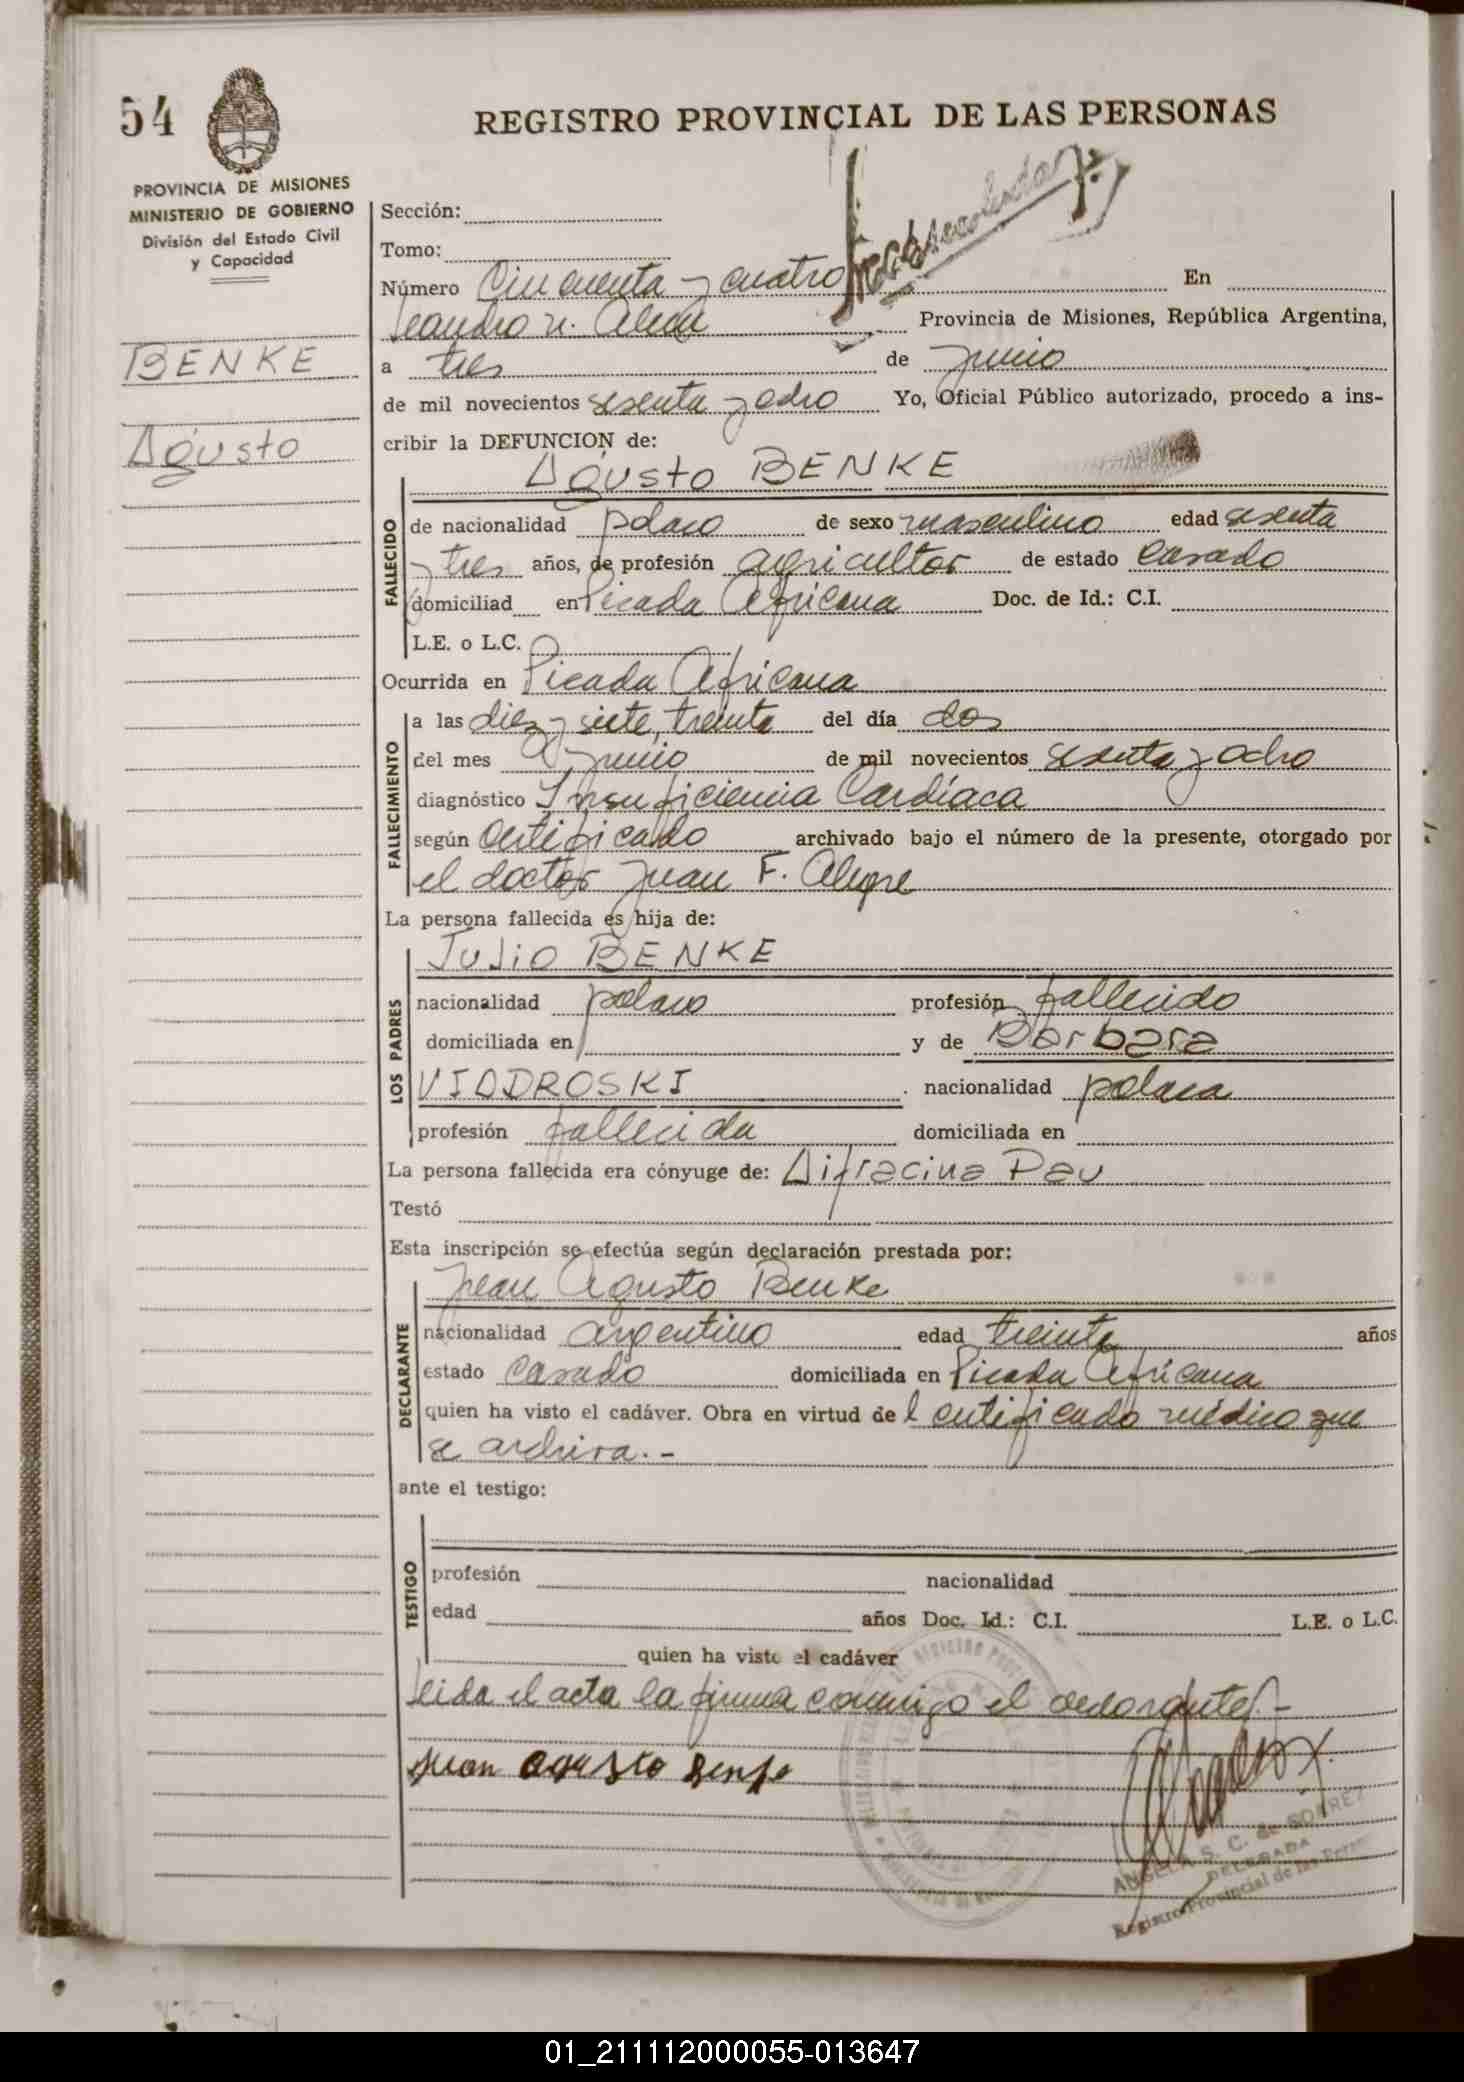 54
REGISTRO PROVINCIAL DE LAS PERSONAS
PROVINCIA DE MISIONES
MINISTERIO DE GOBIERNO
División del Estado Civil
y Capacidad
BENKE
Agusto
Sección:
Tomo:
Número Cincuenta y cuatro En
Leandro N. Alem Provincia de Misiones, República Argentina,
a tres de junio
de mil novecientos sesenta y ocho Yo, Oficial Público autorizado, procedo a ins-
cribir la DEFUNCION de:
Agusto BENKE
FALLECIDO
de nacionalidad polaco de sexo masculino edad sesenta
y tres años, de profesión agricultor de estado Casado
domiciliad en Picada Africana Doc. de Id.: C.I.
L.E. o L.C.
Ocurrida en Picada Africana
FALLECIMIENTO
a las diez y siete, treinta del día dos
del mes junio de mil novecientos sesenta y ocho
diagnóstico Insuficiencia Cardíaca
según certificado archivado bajo el número de la presente, otorgado por
el doctor Juan F. Alegre
La persona fallecida es hija de:
LOS PADRES
Julio BENKE
nacionalidad polaco profesión fallecido
domiciliada en y de Barbara
VIDDROSKI nacionalidad polaca
profesión fallecida domiciliada en
La persona fallecida era cónyuge de: Difracina Pau
Testó
Esta inscripción se efectúa según declaración prestada por:
DECLARANTE
Juan Agusto Benke
nacionalidad argentino edad treinta años
estado Casado domiciliada en Picada Africana
quien ha visto el cadáver. Obra en virtud del certificado médico que
se archiva.-
ante el testigo:
TESTIGO
profesión nacionalidad
edad años Doc. Id.: C.I. L.E. o L.C.
quien ha visto el cadáver
Leida el acta la firma conmigo el declarante.-
Juan Agusto Benke
ANGELA S. C. de
DELEGADA
Registro Provincial de las Personas
01_211112000055-013647